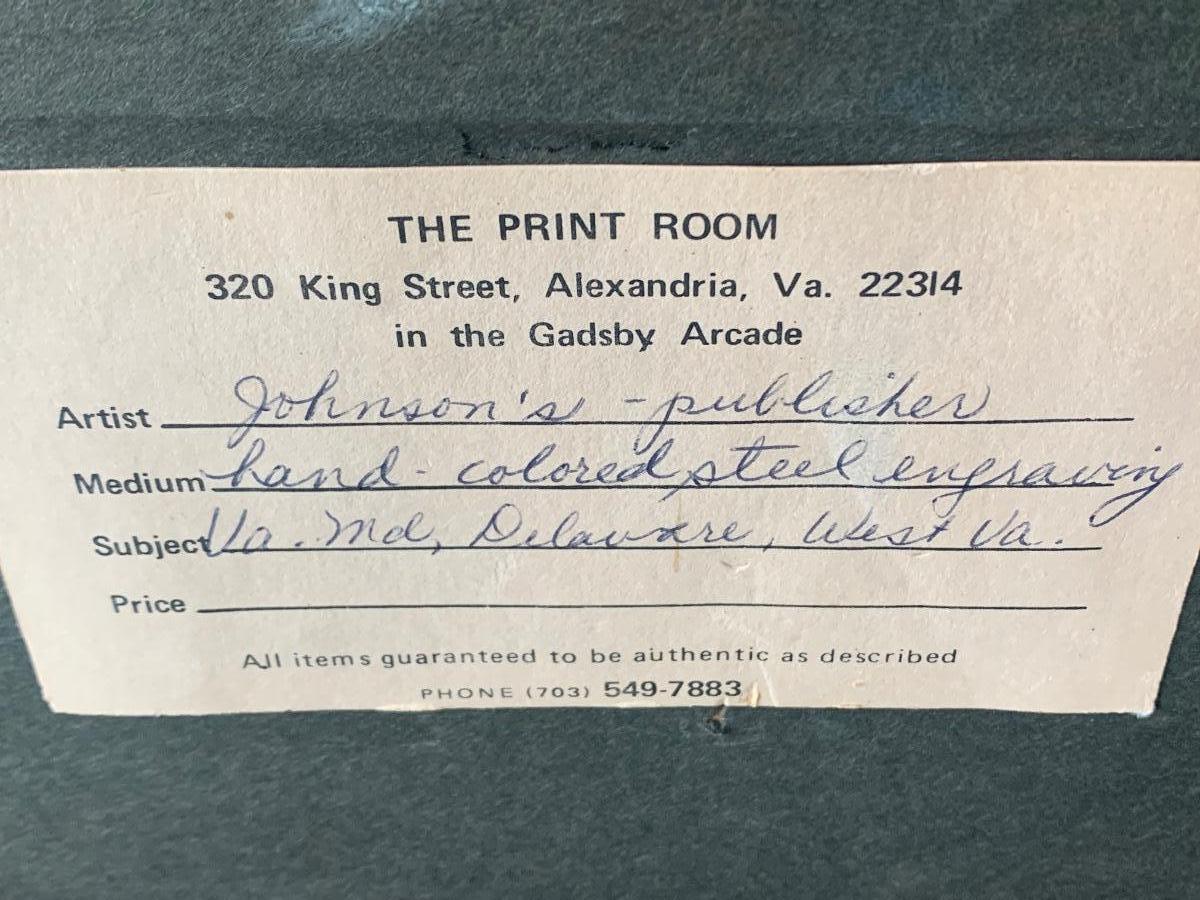 THE PRINT ROOM
320 King Street, Alexandria, Va. 22314
in the Gadsby Arcade
Artist Johnson's - publisher
Medium hand-colored steel engraving
Subject Va. Md, Delaware, West Va.
Price
All items guaranteed to be authentic as described
PHONE (703) 549-7883